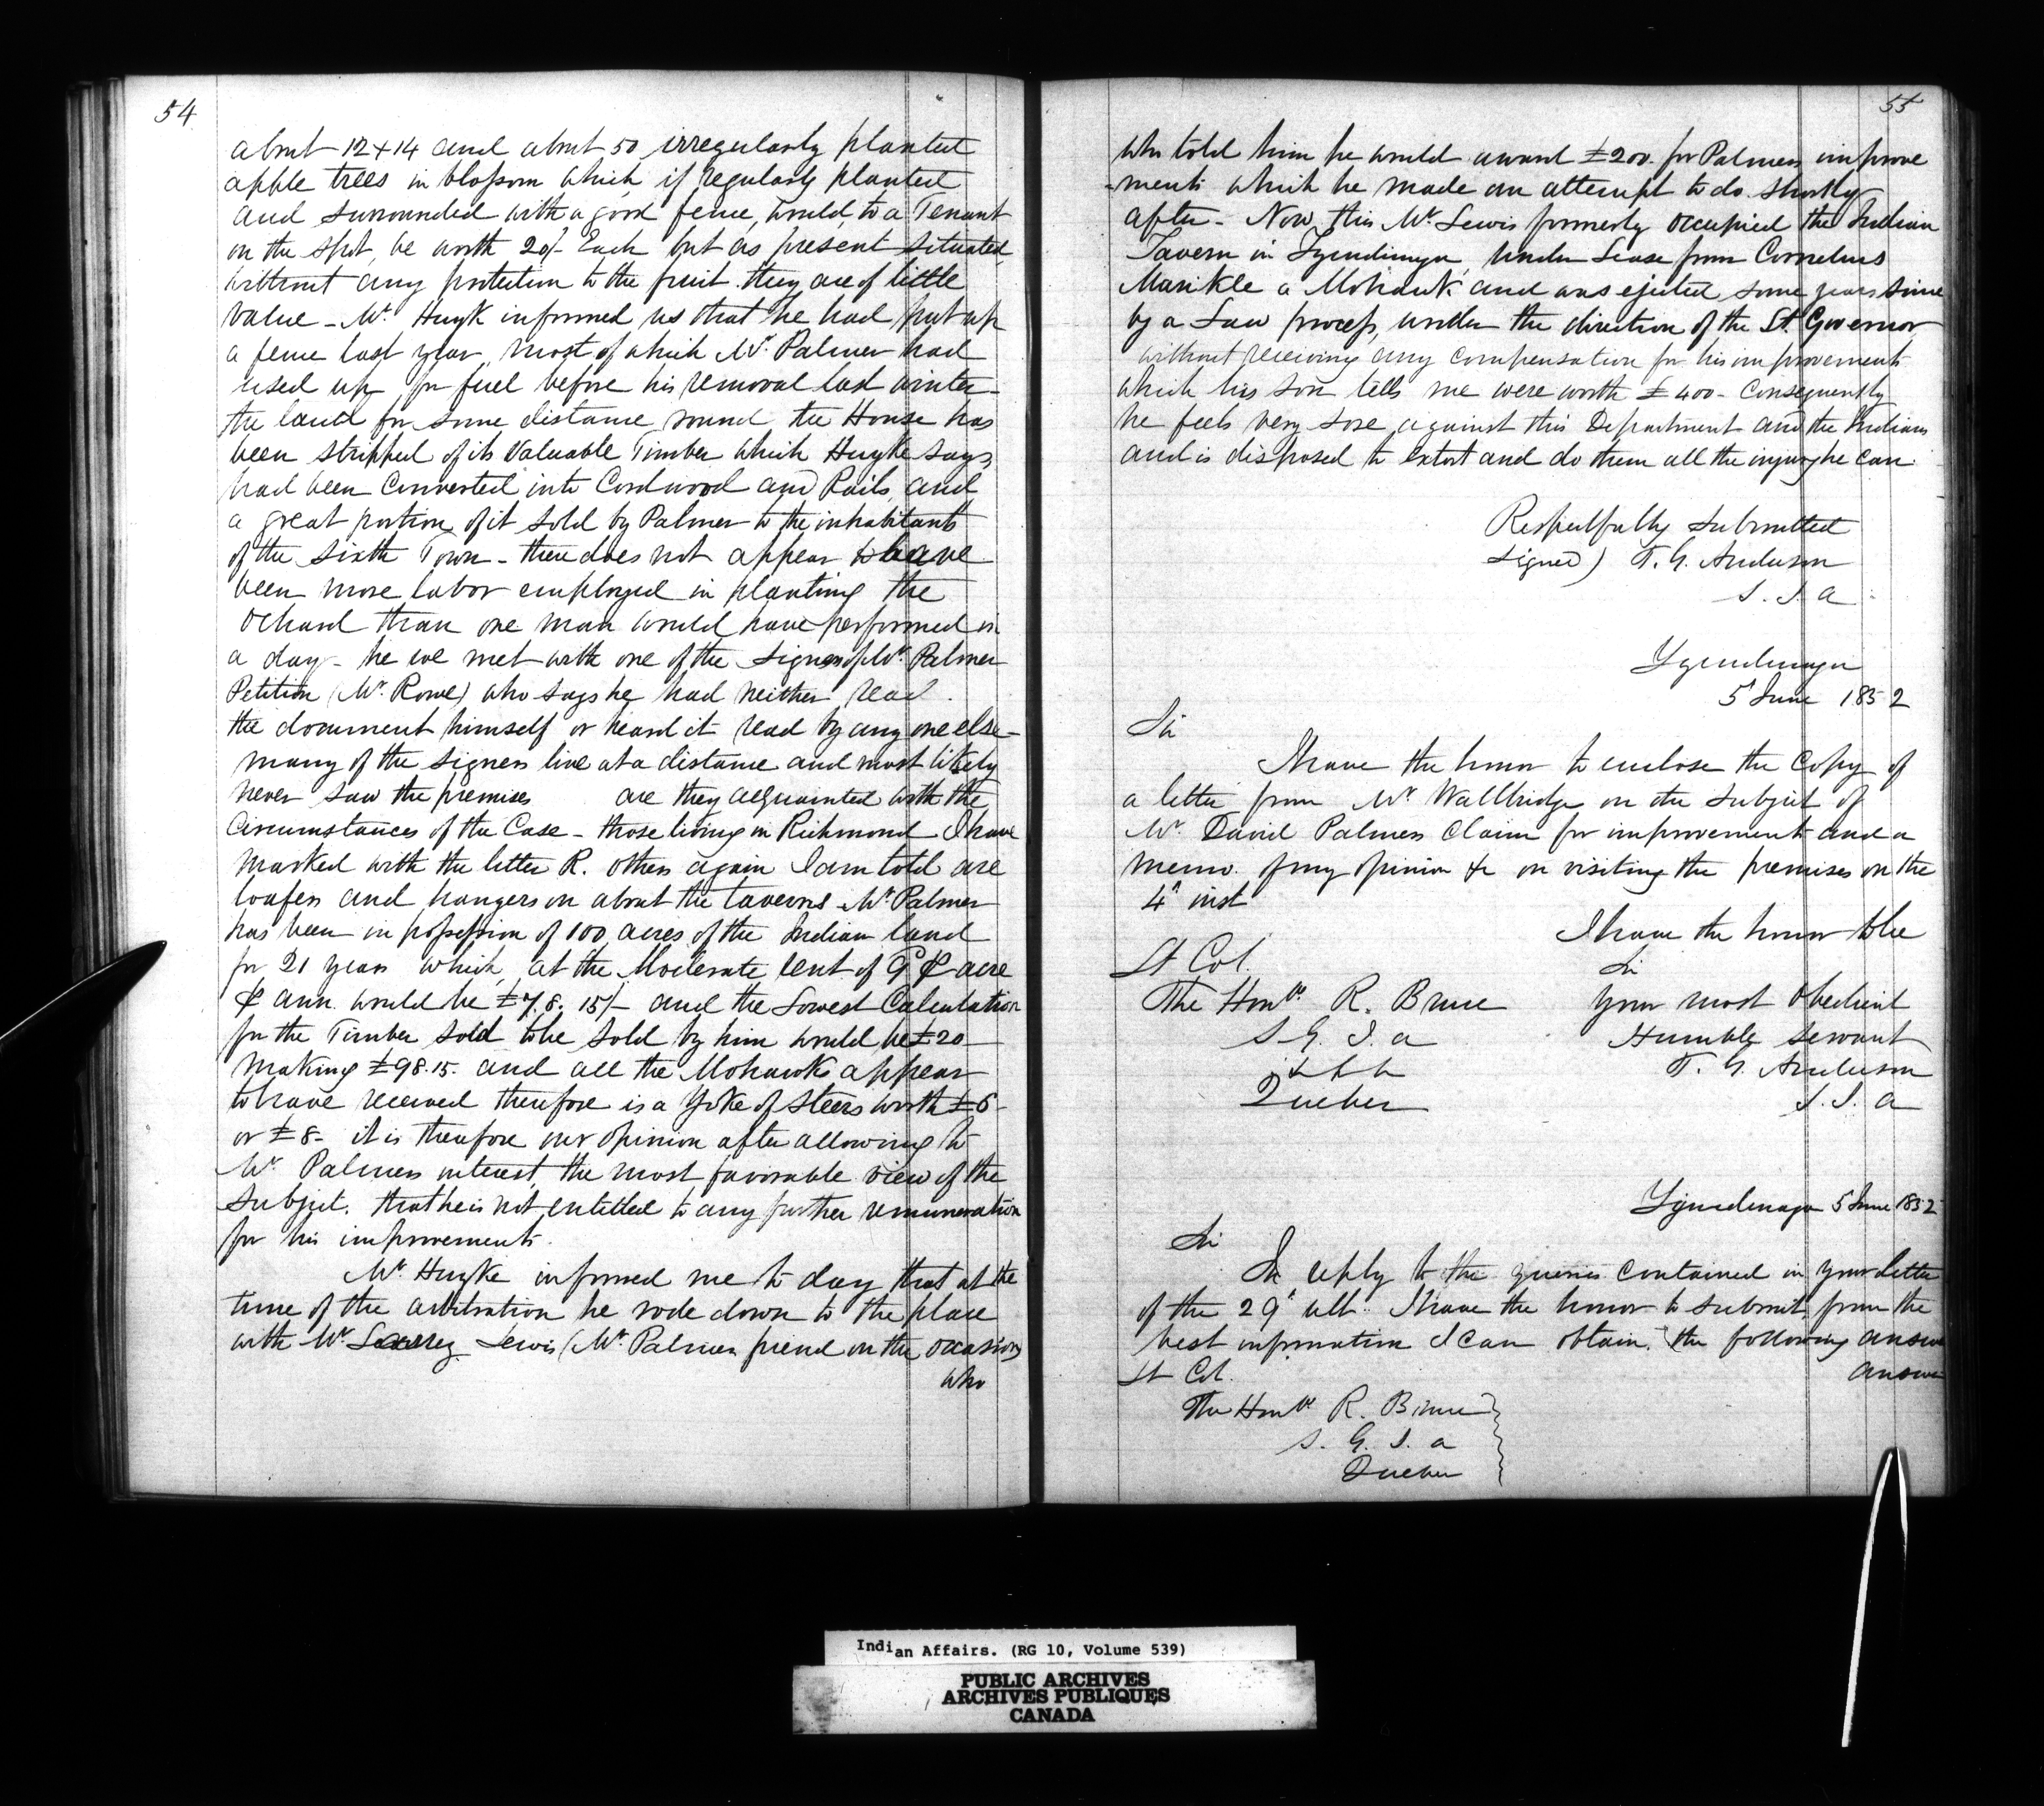 54
about 12 + 14 and about 50 irregularly planted
apple trees in blossom which if regularly planted
and surrounded with a good fence, would to a Tenant
on the spot, be worth 20/- Each but as present situated
without any protection to the fruit they are of little
value - Mr. Huyk informed us that he had put up
a fence last year, most of which Mr. Palmer had
used up for fuel before his removal last winter -
the land for some distance round the House has
been stripped of its Valuable Timber which Huyke says
had been Converted into Cordwood and Rails, and
a great portion of it sold by Palmer to the inhabitants
of the Sixth Town - there does not appear to have
been more labor employed in planting the
Ochard than one man would have performed in
a day - he we met with one of the signers of Mr. Palmer
Petition (Mr. Rowe) who says he had neither read
the document himself or heard it read by any one else -
many of the signers live at a distance and most likely
never saw the premises are they acquainted with the
Circumstances of the Case - those living in Richmond I have
marked with the letter R. others again I am told are
loafers and hangers on about the taverns - Mr Palmer
has been in possession of 100 acres of the Indian land
for 21 years which, at the Moderate rent of 9d ⅌ acre
⅌ ann. would be £78. 15/- and the Lowest Calculation
for the Timber sold to be sold by him would be £20
making £98.15. and all the Mohawks appear
to have received therefore is a Yoke of Steers worth £6
or £8 - it is therefore our opinion after allowing to
Mr. Palmers interest, the most favorable view of the
Subject. that he is not entitled to any further remuneration
for his improvements.
Mr. Huyke informed me to day that at the
time of the arbitration he rode down to the place
with Mr. Lewis (Mr. Palmers friend on the occasion)
who
55
who told him he would award £200. for Palmers improve
-ments which he made an attempt to do shortly
after - Now, this Mr. Lewis formerly occupied the Indian
Tavern in Tyendinaga under Lease from Cornelius
Marikle a Mohawk and was ejected some years since
by a Law process, under the direction of the Lt. Governor
without receiving any compensation for his improvements
which his son tells me were worth £400 - Consequently
he feels very sore against this Department and the Indians
and is disposed to extort and do them all the injury he can.
Respectfully submitted
signed) T. G. Anderson
S. I. A
Tyendinaga
5 June 1852
Sir
I have the honor to enclose the Copy of
a letter from Mr Wallbridge on the subject of
Mr. David Palmers Claim for improvement and a
memo. of my opinion &c on visiting the premises on the
4th inst
I have the honor to be
Lt Col.
Sir
The Honble R. Bruce
Your most obedient
S. G. I. A
Humble servant
&c &c &c
T. G. Anderson
Quebec
S. I. A
Tyendinaga 5 June 1852
Sir
In reply to the queries contained in your letter
of the 29th ult. I have the honor to submit, from the
best information I can obtain. the following answer
Lt Col.
answer
The Honble R. Bruce
S. G. I. A
Quebec
Indian Affairs. (RG 10, Volume 539)
PUBLIC ARCHIVES
ARCHIVES PUBLIQUES
CANADA